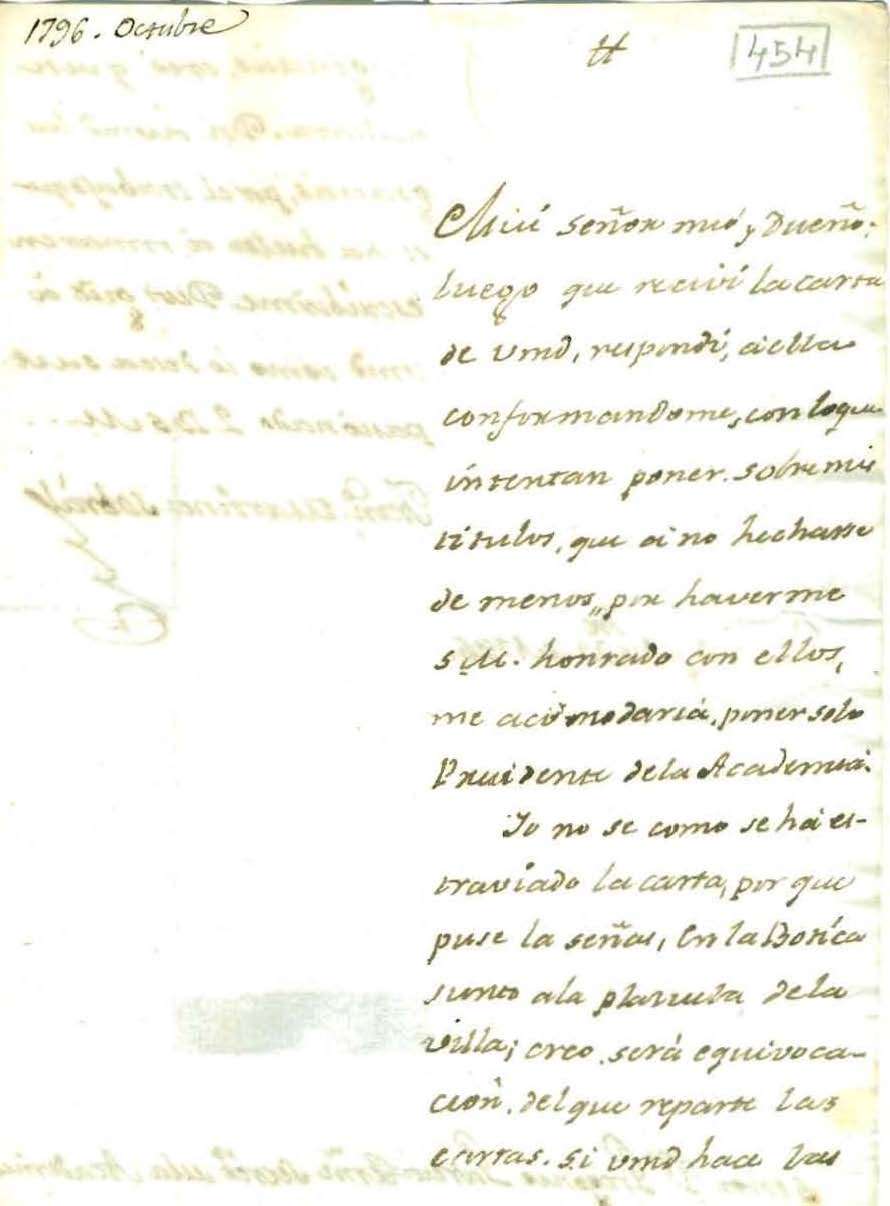 1796. Octubre
454
Mui señor mió y Dueño:
luego que recivi la carta
de vmd, respondi, aella
conformandome, con loque
intentan poner sobre mis
titulos, que ai no hecharse
de menos, por haverme
S.M. honrado con ellos,
me acomodariá, poner solo
Presidente dela Academia.
Io no se como se há es-
traviado la carta, por que
puse la señas, En la Botica
junto ala plazuela dela
villa; creo será equivoca-
cion del que reparte las
cartas. si vmd hace las